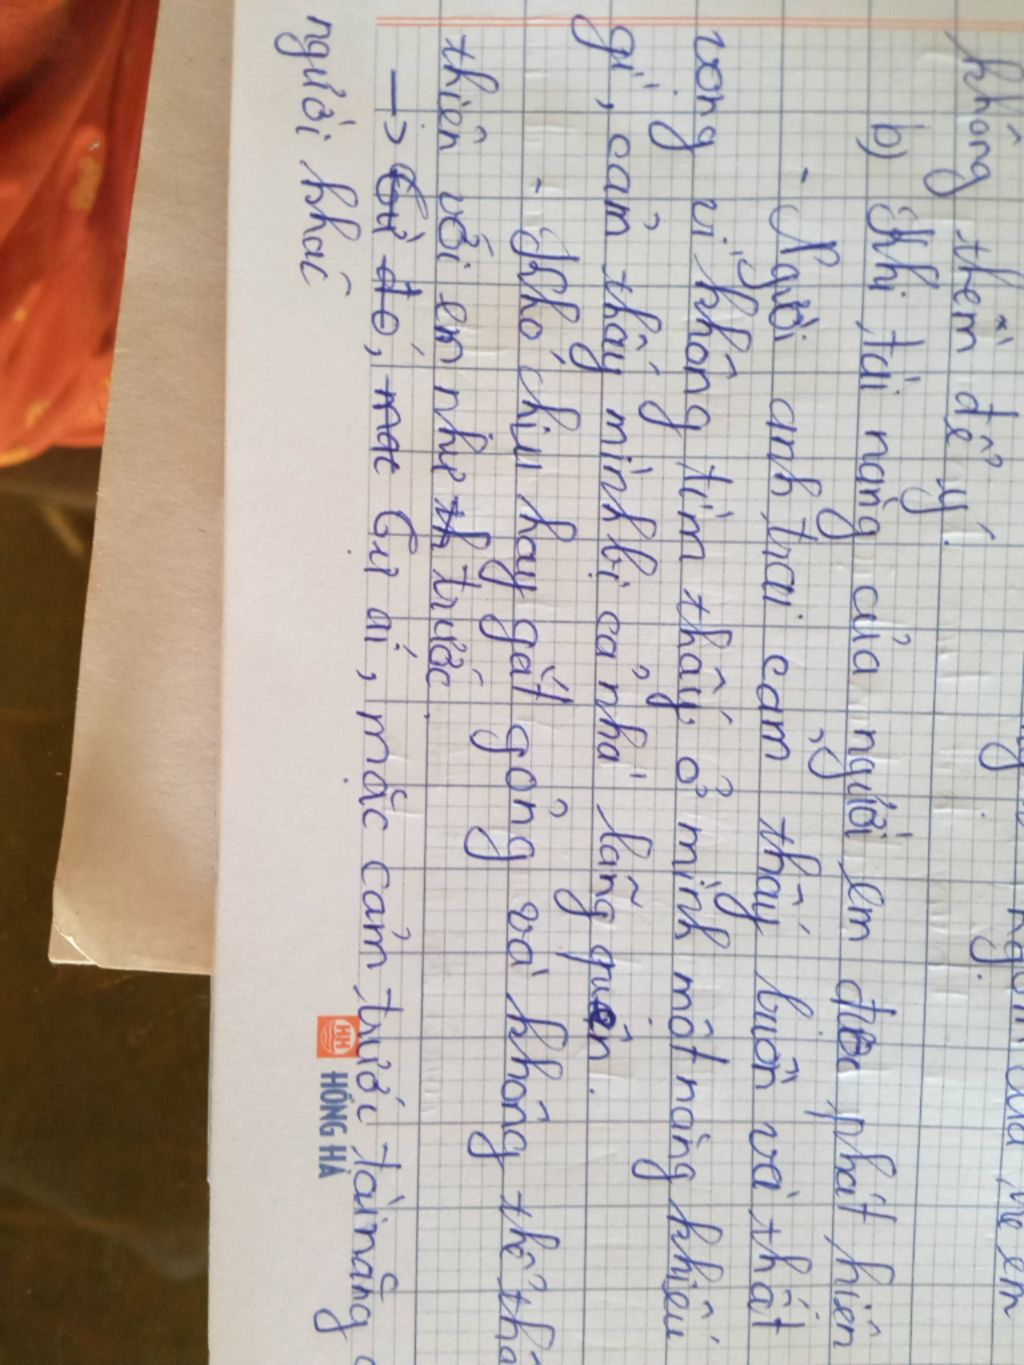 không thèm để ý.
b) Khi tài năng của người em được phát hiện
- Người anh trai cảm thấy buồn và thất
vọng vì không tìm thấy ở mình một năng khiếu
gì, cảm thấy mình bị cả nhà lãng quên.
- Khó chịu hay gắt gỏng và không thể thâ
thiện với em như trước.
→ Tự ái, mặc cảm trước tài năng
người khác
HỒNG HÀ